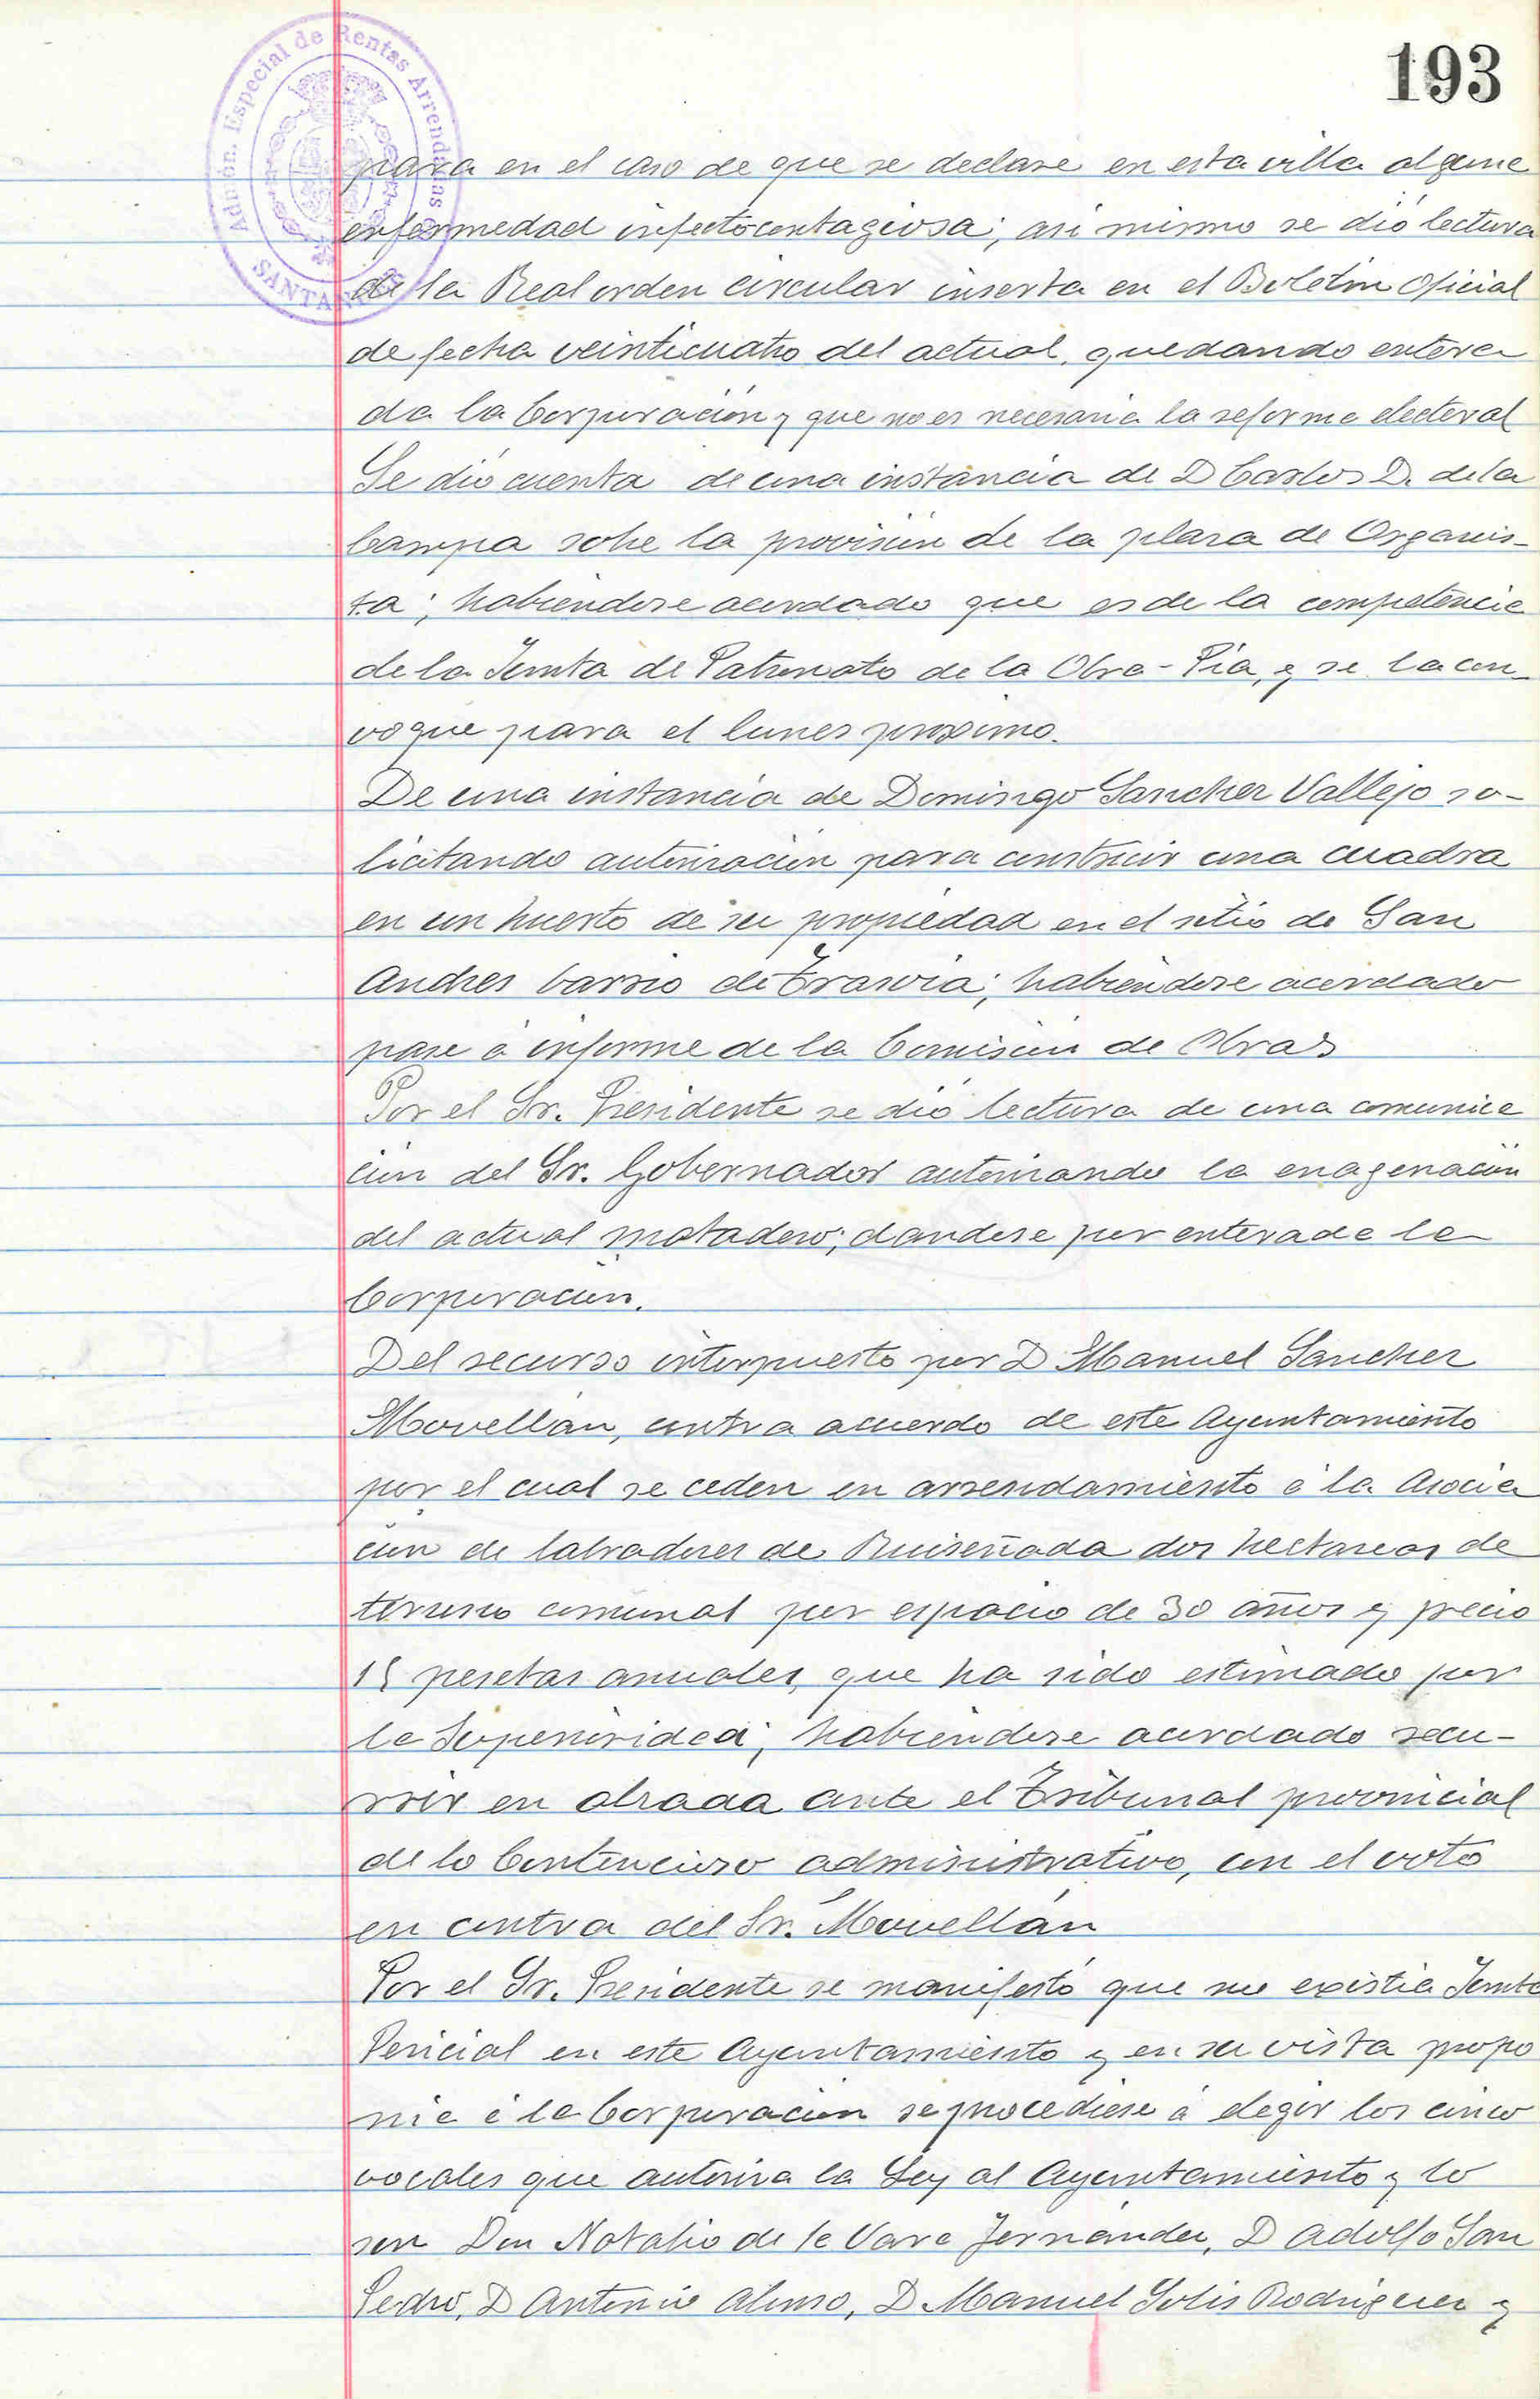 193
Admón. Especial de Rentas Arrendadas
SANTANDER
para en el caso de que se declare en esta villa alguna
enfermedad infectocontagiosa; asi mismo se dió lectura
de la Real orden circular inserta en el Boletin Oficial
de fecha veinticuatro del actual, quedando entera
da la Corporación y que no es necesaria la reforma electoral
Se dió cuenta de una instancia de D Carlos D. de la
Campa sobre la provisión de la plaza de Organis-
ta; habiendose acordado que es de la competencia
de la Junta de Patronato de la Obra-Pía, y se la con_
voque para el lunes proximo.
De una instancia de Domingo Sanchez Vallejo so-
licitando autorización para construir una cuadra
en un huerto de su propiedad en el sitio de San
Andres barrio de Trasvia; habiendose acordado
pase á informe de la Comisión de Obras
Por el Sr. Presidente se dió lectura de una comunica
ción del Sr. Gobernador autorizando la enagenación
del actual matadero; dandose por enterada la
Corporación.
Del recurso interpuesto por D Manuel Sanchez
Movellán, contra acuerdo de este Ayuntamiento
por el cual se ceden en arrendamiento á la Asocia
ción de labradores de Ruiseñada dos hectareas de
terreno comunal por espacio de 30 años y precio
15 pesetas anuales, que ha sido estimado por
la Superioridad; habiendose acordado recu-
rrir en alzada ante el Tribunal provincial
de lo Contencioso administrativo, con el voto
en contra del Sr. Movellán
Por el Sr. Presidente se manifestó que no existia Junta
Pericial en este Ayuntamiento y en su vista propo
nia á la Corporación se procediese á elegir los cinco
vocales que autoriza la Ley al Ayuntamiento y lo
son Don Natalio de la Vara Fernández, D Adolfo San
Pedro, D Antonio Alonso, D Manuel Solis Rodriguez y